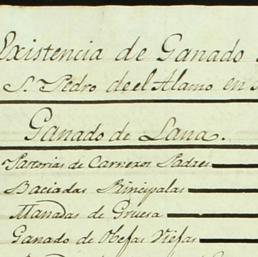 Existencia de Ganado
S. Pedro de el Alamo en
Ganado de Lana.
Pastorias de Carneros Padres
Baciadas Principales
Manadas de Gruesa
Ganado de Obejas Viejas